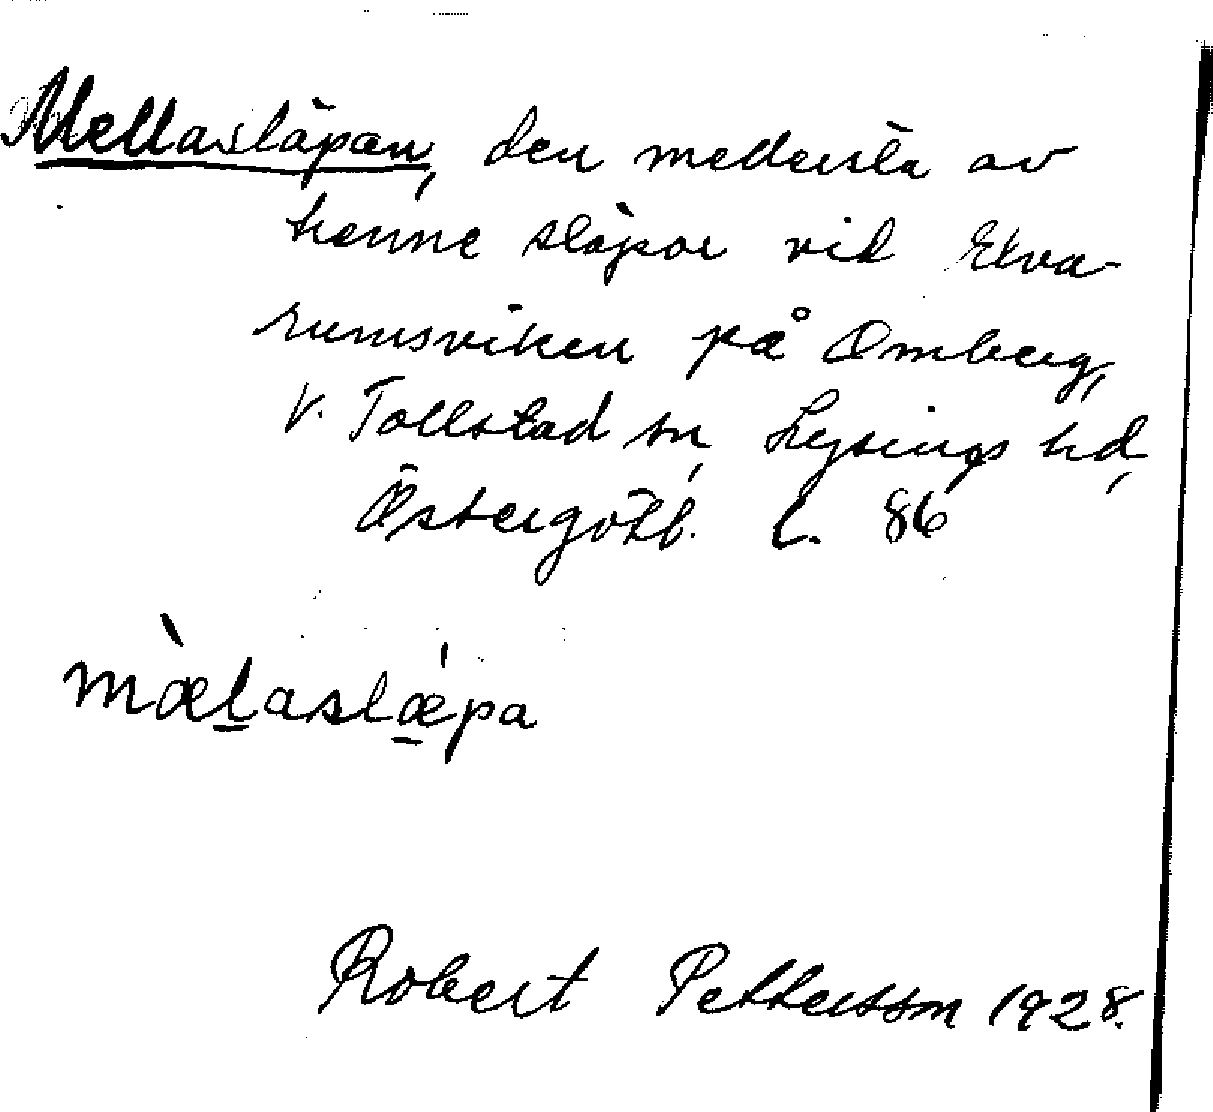 Mellasläpan, den medersta av
trenne släpor vid Elva-
rumsviken på Omberg,
V. Tollstad sn, Lysings hd,
Östergötl. L. 86
mæ̀laslǽ̱pa
Robert Pettersson 1928.